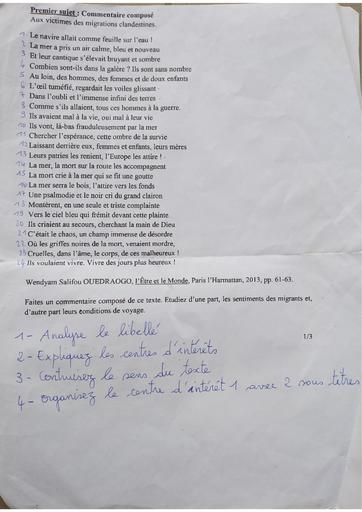 Premier sujet : Commentaire composé
Aux victimes des migrations clandestines.
1 Le navire allait comme feuille sur l'eau !
2 La mer a pris un air calme, bleu et nouveau
3 Et leur cantique s'élevait bruyant et sombre
4 Combien sont-ils dans la galère ? Ils sont sans nombre
5 Au loin, des hommes, des femmes et de doux enfants
6 L'œil tuméfié, regardait les voiles glissant
7 Dans l'oubli et l'immense infini des terres
8 Comme s'ils allaient, tous ces hommes à la guerre.
9 Ils avaient mal à la vie, oui mal à leur vie
10 Ils vont, là-bas frauduleusement par la mer
11 Chercher l'espérance, cette ombre de la survie
12 Laissant derrière eux, femmes et enfants, leurs mères
13 Leurs patries les renient, l'Europe les attire !
14 La mer, la mort sur la route les accompagnent
15 La mort crie à la mer qui se fit une goutte
16 La mer serra le bois, l'attire vers les fonds
17 Une psalmodie et le noir cri du grand clairon
18 Montèrent, en une seule et triste complainte
19 Vers le ciel bleu qui frémit devant cette plainte
20 Ils criaient au secours, cherchant la main de Dieu
21 C'était le chaos, un champ immense de désordre
22 Où les griffes noires de la mort, venaient mordre,
23 Cruelles, dans l'âme, le corps, de ces malheureux !
24 Ils voulaient vivre. Vivre des jours plus heureux !
Wendyam Salifou OUEDRAOGO, l'Être et le Monde, Paris l'Harmattan, 2013, pp. 61-63.
Faites un commentaire composé de ce texte. Etudiez d'une part, les sentiments des migrants et,
d'autre part leurs conditions de voyage.
1/3
1 - Analyse le libellé
2 - Expliquez les centres d'intérêts
3 - Construisez le sens du texte
4 - organisez le centre d'intérêt 1 avec 2 sous titres